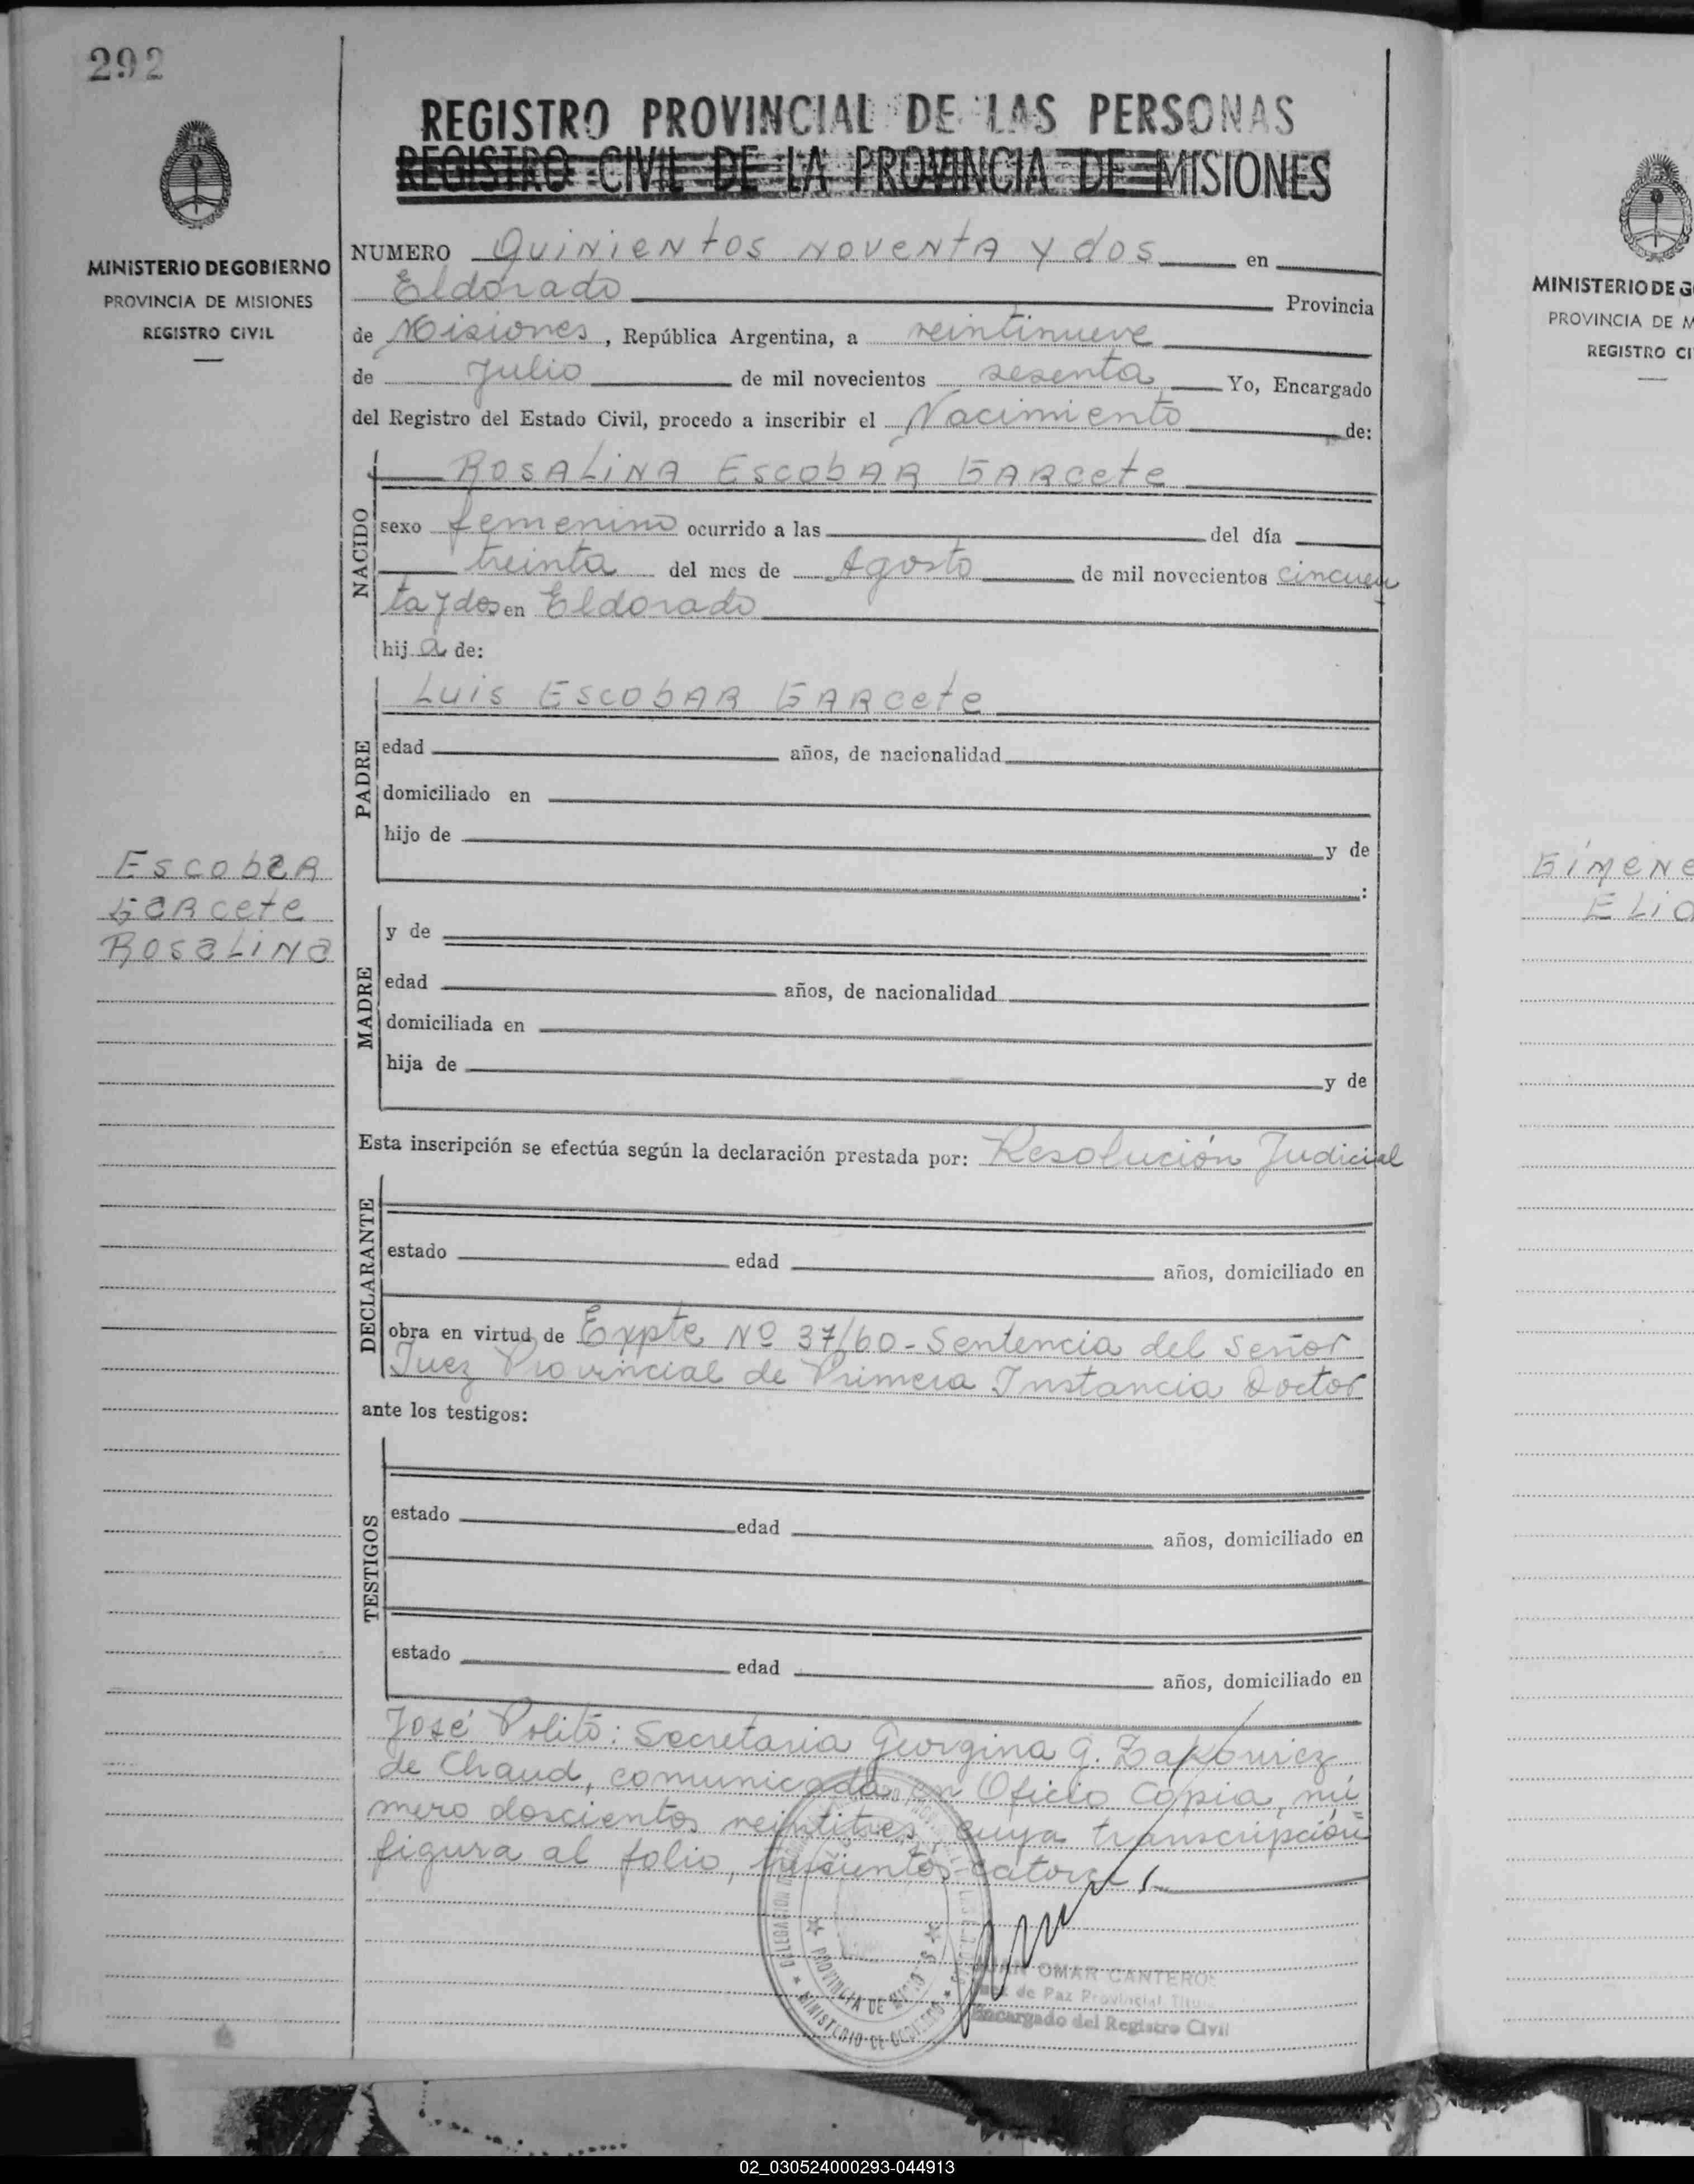 292
REGISTRO PROVINCIAL DE LAS PERSONAS
REGISTRO CIVIL DE LA PROVINCIA DE MISIONES
MINISTERIO DE GOBIERNO
PROVINCIA DE MISIONES
REGISTRO CIVIL
NUMERO Quinientos noventa y dos en
Eldorado Provincia
de Misiones, República Argentina, a veintinueve
de Julio de mil novecientos sesenta Yo, Encargado
del Registro del Estado Civil, procedo a inscribir el Nacimiento de:
NACIDO
Rosalina Escobar Garcete
sexo femenino ocurrido a las del día
treinta del mes de Agosto de mil novecientos cincuen
ta y dos en Eldorado
hija de:
PADRE
Luis Escobar Garcete
edad años, de nacionalidad
domiciliado en
hijo de y de
:
Escobar
Garcete
Rosalina
MADRE
y de
edad años, de nacionalidad
domiciliada en
hija de y de
Esta inscripción se efectúa según la declaración prestada por: Resolución Judicial
DECLARANTE
estado edad años, domiciliado en
obra en virtud de Expte Nº 37/60 - Sentencia del Señor
Juez Provincial de Primera Instancia Doctor
ante los testigos:
TESTIGOS
estado edad años, domiciliado en
estado edad años, domiciliado en
José Polito: Secretaria Georgina G. Zakowicz
de Chaud, comunicada en Oficio Copia, nú
mero doscientos veintitres, cuya transcripción
figura al folio, trescientos catorce
DELEGACION
PROVINCIA DE MISIONES
MINISTERIO DE GOBIERNO
JUAN OMAR CANTEROS
Juez de Paz Provincial Titular
Encargado del Registro Civil
MINISTERIO DE G
PROVINCIA DE M
REGISTRO CI
Gimene
Elio
02_030524000293-044913